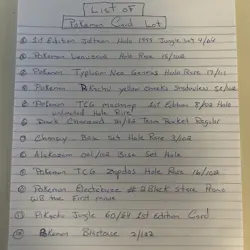 List of
Pokemon Card Lot
1st Edition Jolteon Holo 1999 Jungle Set 4/64
Pokemon Venusaur Holo Rare 15/102
Pokemon Typhlosion Neo Genesis Holo Rare 17/111
Pokemon Pikachu yellow Cheeks Shadowless 58/102
Pokemon TCG 1st Edition 8/ Holo
unlimited Holo Rare
Dark Charizard /82 Team Rocket Regular
Chansey Base Set Holo Rare 3/102
Alakazam 001/102 Base Set Holo
Pokemon TCG Zapdos Holo Rare 16/102
Pokemon Electabuzz # 2 Black Star Promo
WB the First movie
Pikachu Jungle 60/64 1st Edition Card
Pokemon Blastoise 2/102